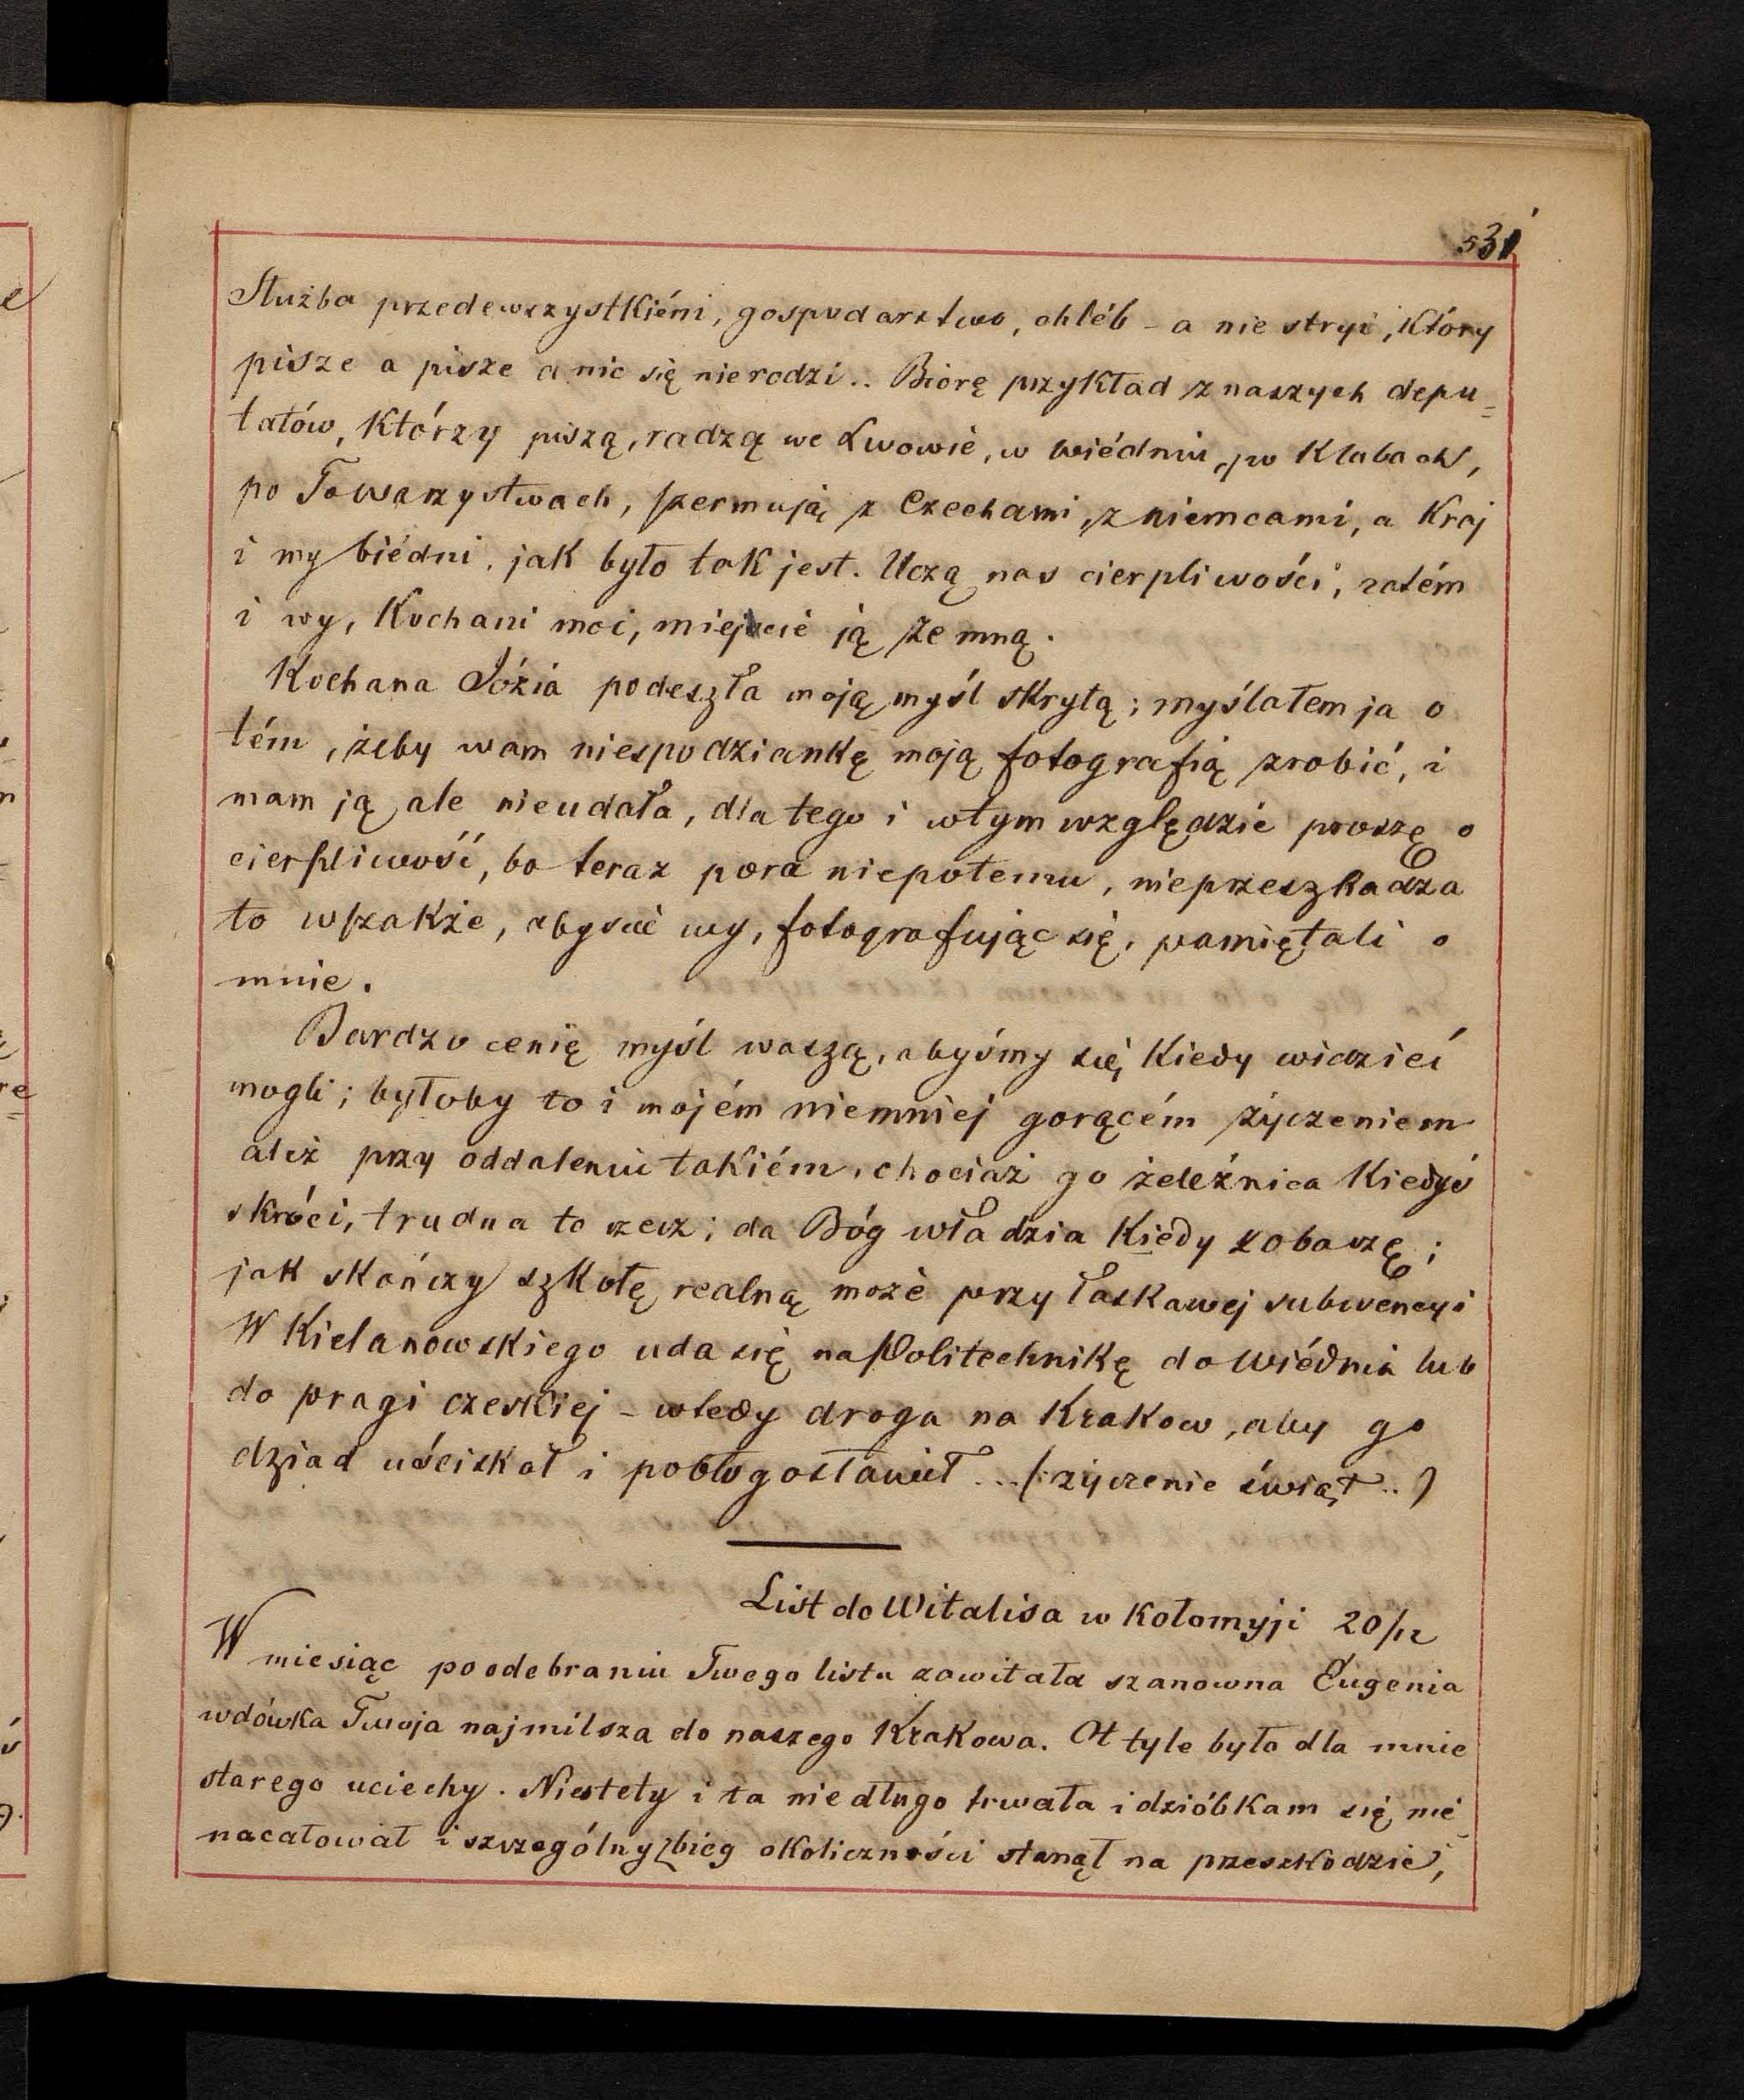 531
Służba przedewszystkiém, gospodarstwo, chléb - a nie stryi, który
pisze a pisze a nic się nierodzi.. Biorę przykład z naszych depu=
tatów, którzy piszą, radzą we Lwowie, w Wiédniu, po Klubach,
po Towarzystwach, szermują z Czechami, z niemcami, a Kraj
i my biédni, jak było tak jest. Uczą nas cierpliwości, zatém
i wy, Kochani moi, miejcie ją ze mną.
Kochana Józia podeszła moją myśl skrytą; myślałem ja o
tém, żeby wam niespodziankę moją fotografią zrobić, i
mam ją ale nieudała, dla tego i wtym względzie proszę o
cierpliwość, bo teraz pora niepotemu, nieprzeszkadza
to wszakże, abyście wy, fotografując się, pamiętali o
mnie.
Bardzo cenię myśl waszą, abyśmy się kiedy widzieć
mogli; byłoby to i mojém niemniej gorącém życzeniem
ależ przy oddaleniu takiém, chociaż go żeleźnica kiedyś
skróci, trudna to rzecz; da Bóg Władzia kiedy zobaczę;
jak skończy szkołę realną może przy łaskawej subwencyi
W Kielanowskiego uda się na Politechnikę do Wiédnia lub
do pragi czeskiej - wtedy droga na Krakow, aby go
dziad uściskał i pobłogosławił ... (: życzenie świąt .. )
List do Witalisa w Kołomyji 20/12
W miesiąc po odebraniu Twego listu zawitała szanowna Eugenia
wdówka Twoja najmilsza do naszego Krakowa. Ot tyle było dla mnie
starego uciechy. Niestety i ta niedługo trwała i dzióbkam się nie
nacałował i szczególny zbieg okoliczności stanął na przeszkodzie,